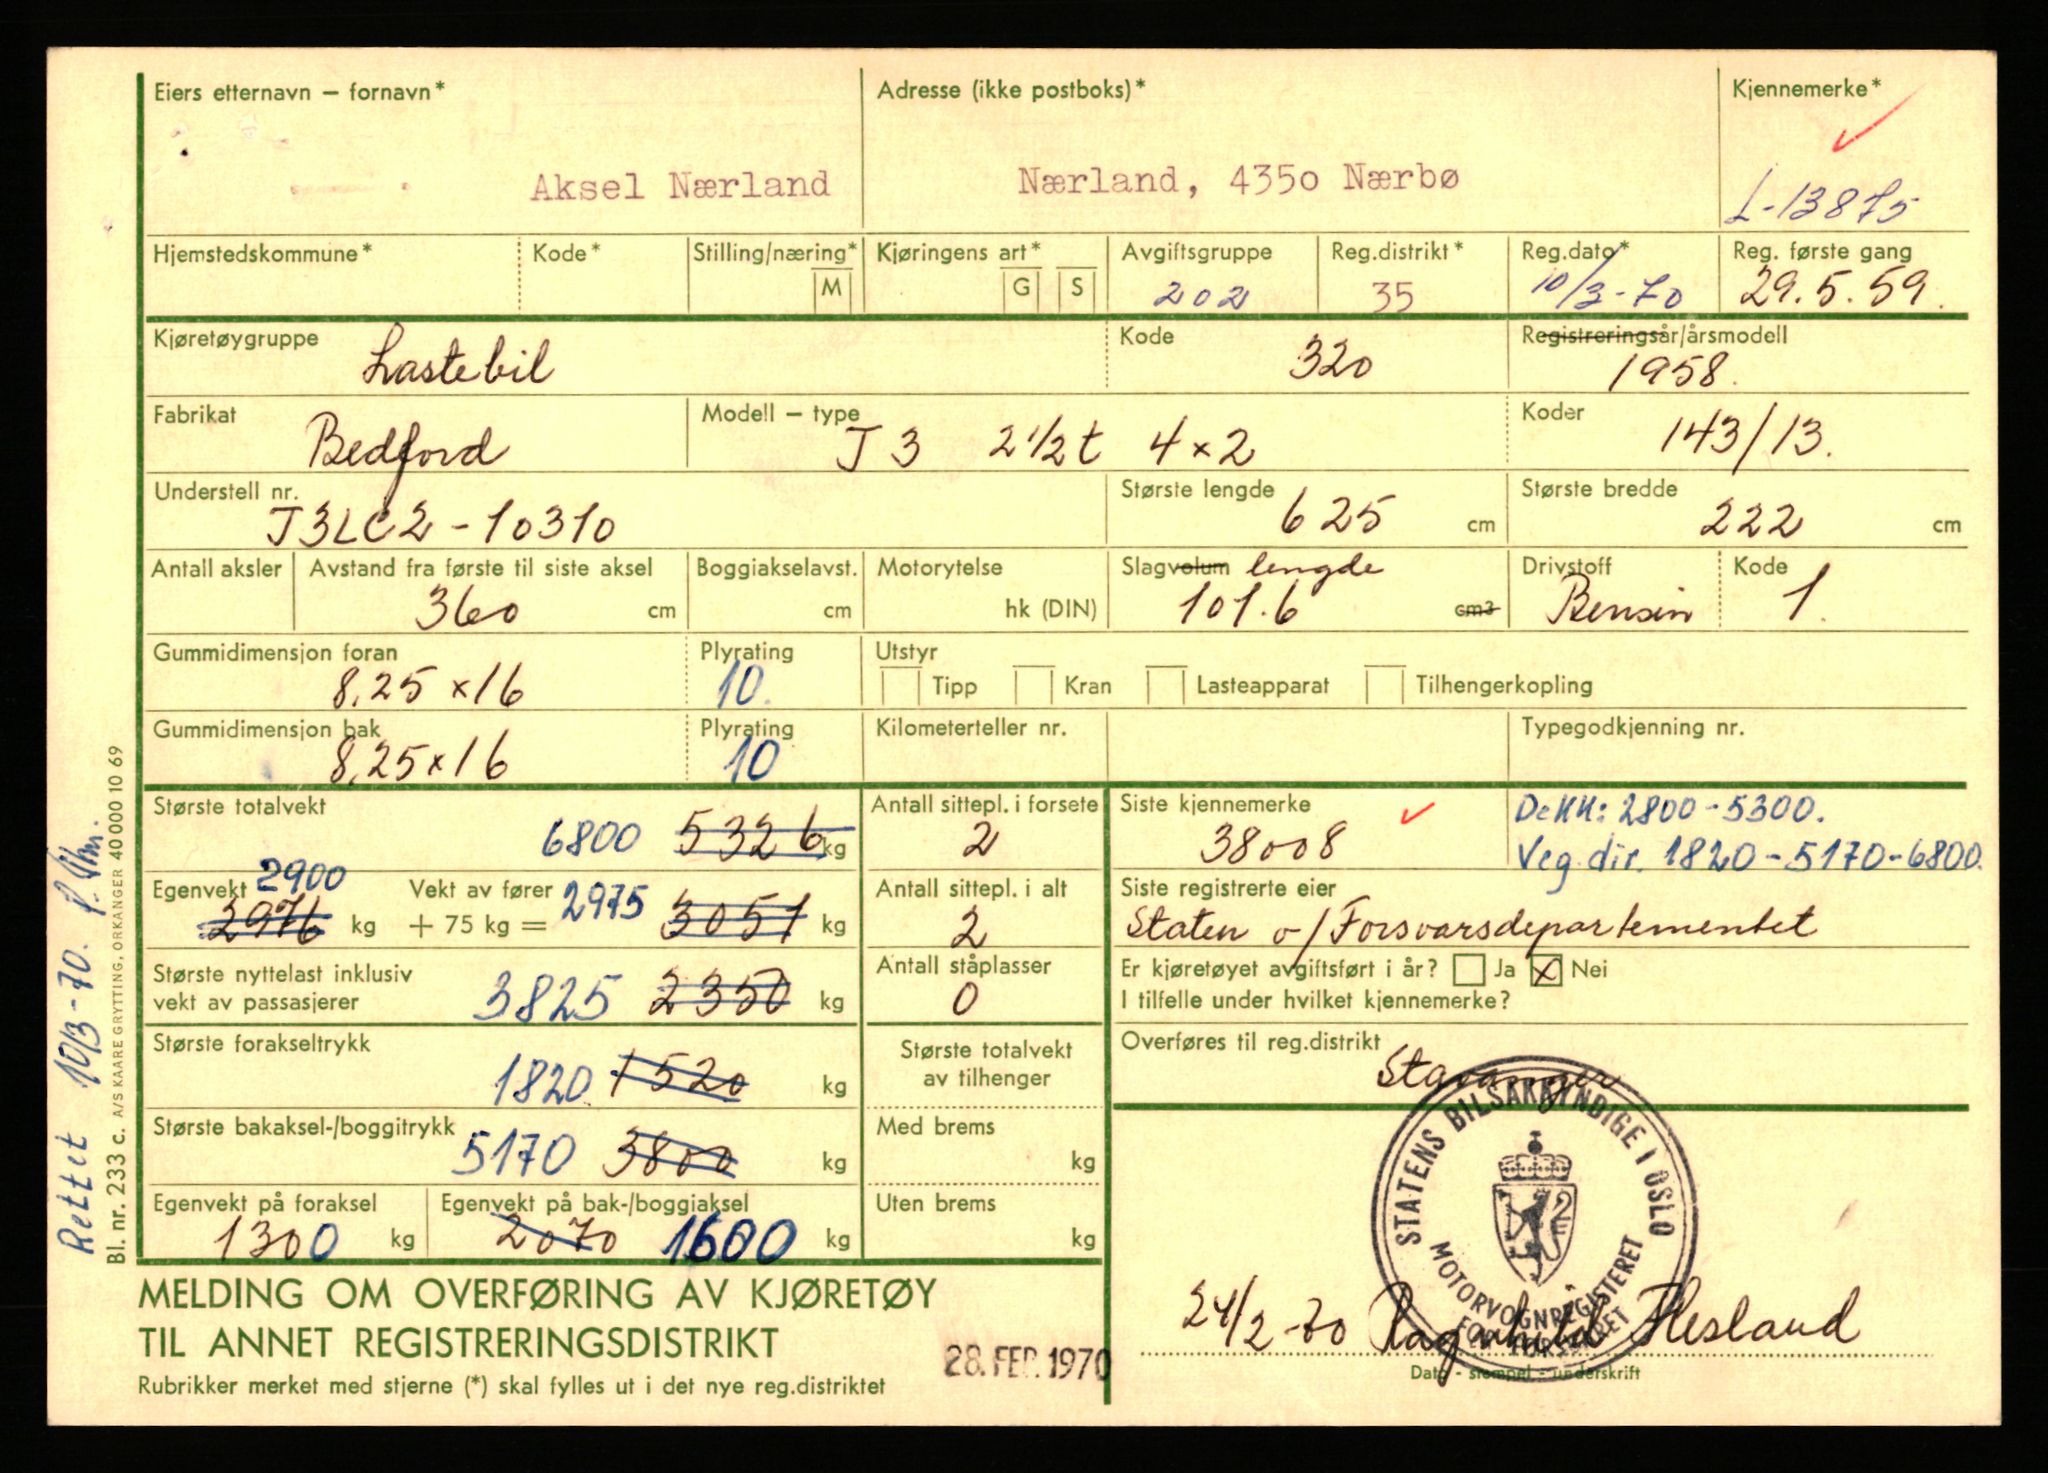 Eiers etternavn – fornavn*
Aksel Nærland
Adresse (ikke postboks)*
Nærland, 4350 Nærbø
Kjennemerke*
L-13875
Hjemstedskommune*
Kode*
Stilling/næring*
M
Kjøringens art*
G S
Avgiftsgruppe
202
Reg.distrikt*
35
Reg.dato*
10/3-70
Reg. første gang
29.5.59.
Kjøretøygruppe
Lastebil
Kode
320
Registreringsår/årsmodell
1958.
Fabrikat
Bedford
Modell – type
J3 2 1/2 t 4x2
Koder
143/13.
Understell nr.
J3LC2-10310
Største lengde
625 cm
Største bredde
222 cm
Antall aksler
Avstand fra første til siste aksel
360 cm
Boggiakselavst.
cm
Motorytelse
hk (DIN)
Slagvolum lengde
101.6 cm3
Drivstoff
Bensin
Kode
1.
Gummidimensjon foran
8,25 x 16
Plyrating
10.
Utstyr
Tipp Kran Lasteapparat Tilhengerkopling
Gummidimensjon bak
8,25 x 16
Plyrating
10
Kilometerteller nr.
Typegodkjenning nr.
Største totalvekt
6800 5326 kg
Egenvekt 2900
2976 kg
Vekt av fører
+ 75 kg = 2975 3051 kg
Største nyttelast inklusiv
vekt av passasjerer
3825 2350 kg
Største forakseltrykk
1820 1520 kg
Største bakaksel-/boggitrykk
5170 3800 kg
Egenvekt på foraksel
1300 kg
Egenvekt på bak-/boggiaksel
2070 1600 kg
Antall sittepl. i forsete
2
Antall sittepl. i alt
2
Antall ståplasser
0
Største totalvekt
av tilhenger
Med brems
kg
Uten brems
kg
Siste kjennemerke
38008
Dekk: 2800-5300.
Veg.dir. 1820-5170-6800.
Siste registrerte eier
Staten v/Forsvarsdepartementet
Er kjøretøyet avgiftsført i år? Ja x Nei
I tilfelle under hvilket kjennemerke?
Overføres til reg.distrikt
Stavanger
STATENS BILSAKKYNDIGE I OSLO
MOTORVOGNREGISTERET
24/2-70 Ragnhild Hesland
Dato - stempel - underskrift
MELDING OM OVERFØRING AV KJØRETØY
TIL ANNET REGISTRERINGSDISTRIKT
28. FEB. 1970
Rubrikker merket med stjerne (*) skal fylles ut i det nye reg.distriktet
Rettet 10/3-70.
Bl. nr. 233 c. A/S KAARE GRYTTING, ORKANGER 40 000 10 69